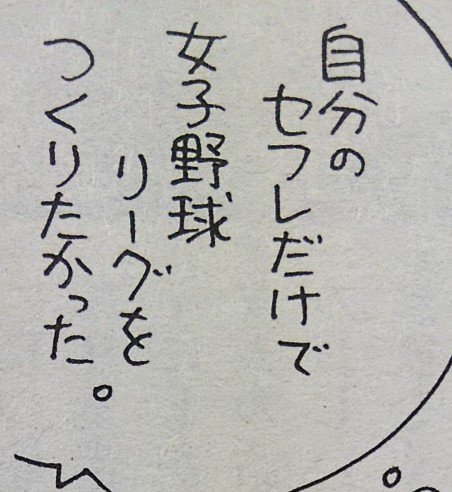 自分の
セフレだけで
女子野球
リーグを
つくりたかった。